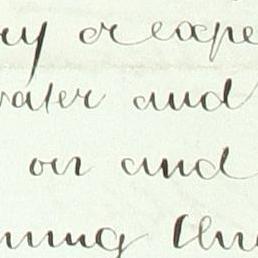 ry or expe
water and
on and
ning the